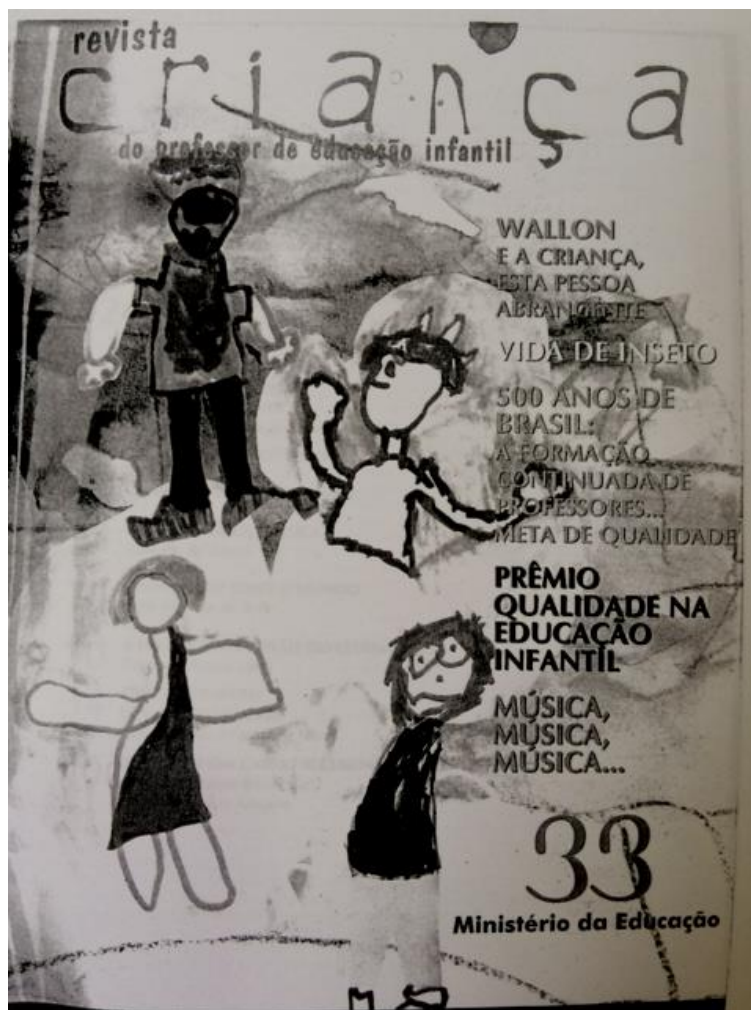 revista
criança
do professor de educação infantil
WALLON
E A CRIANÇA,
ESTA PESSOA
ABRANGENTE
VIDA DE INSETO
500 ANOS DE
BRASIL:
A FORMAÇÃO
CONTINUADA DE
PROFESSORES...
META DE QUALIDADE
PRÊMIO
QUALIDADE NA
EDUCAÇÃO
INFANTIL
MÚSICA,
MÚSICA,
MÚSICA...
33
Ministério da Educação